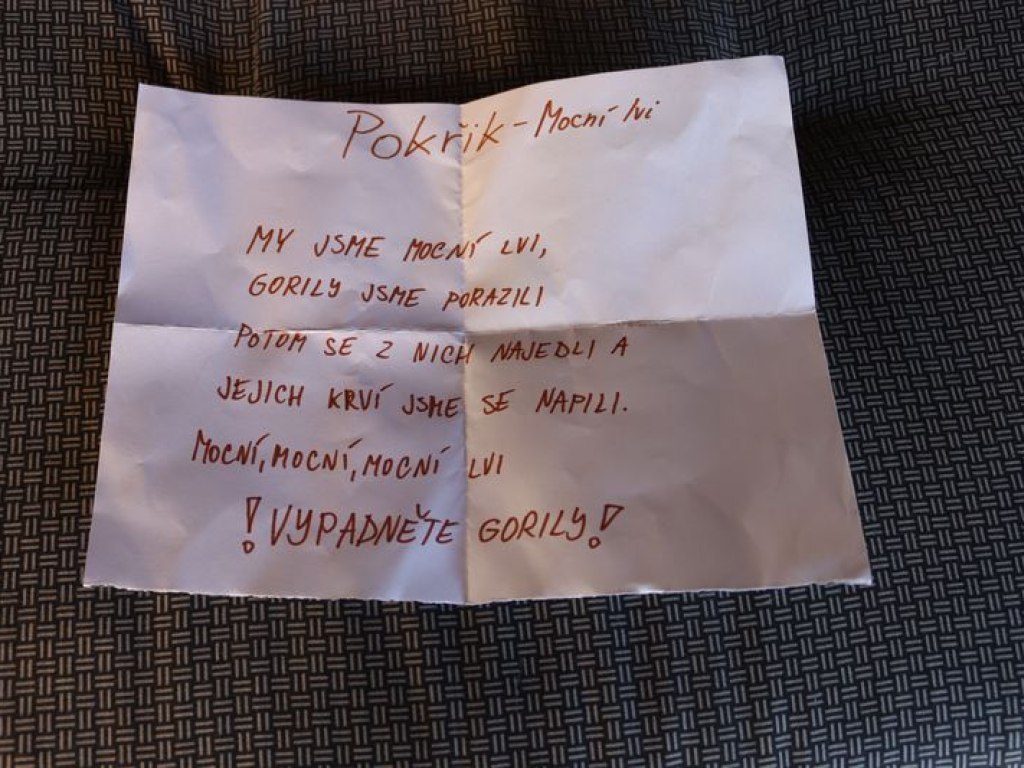 Pokřik - Mocní lvi
MY JSME MOCNÍ LVI,
GORILY JSME PORAZILI
POTOM SE Z NICH NAJEDLI A
JEJICH KRVÍ JSME SE NAPILI.
MOCNÍ, MOCNÍ, MOCNÍ LVI
! VYPADNĚTE GORILY!